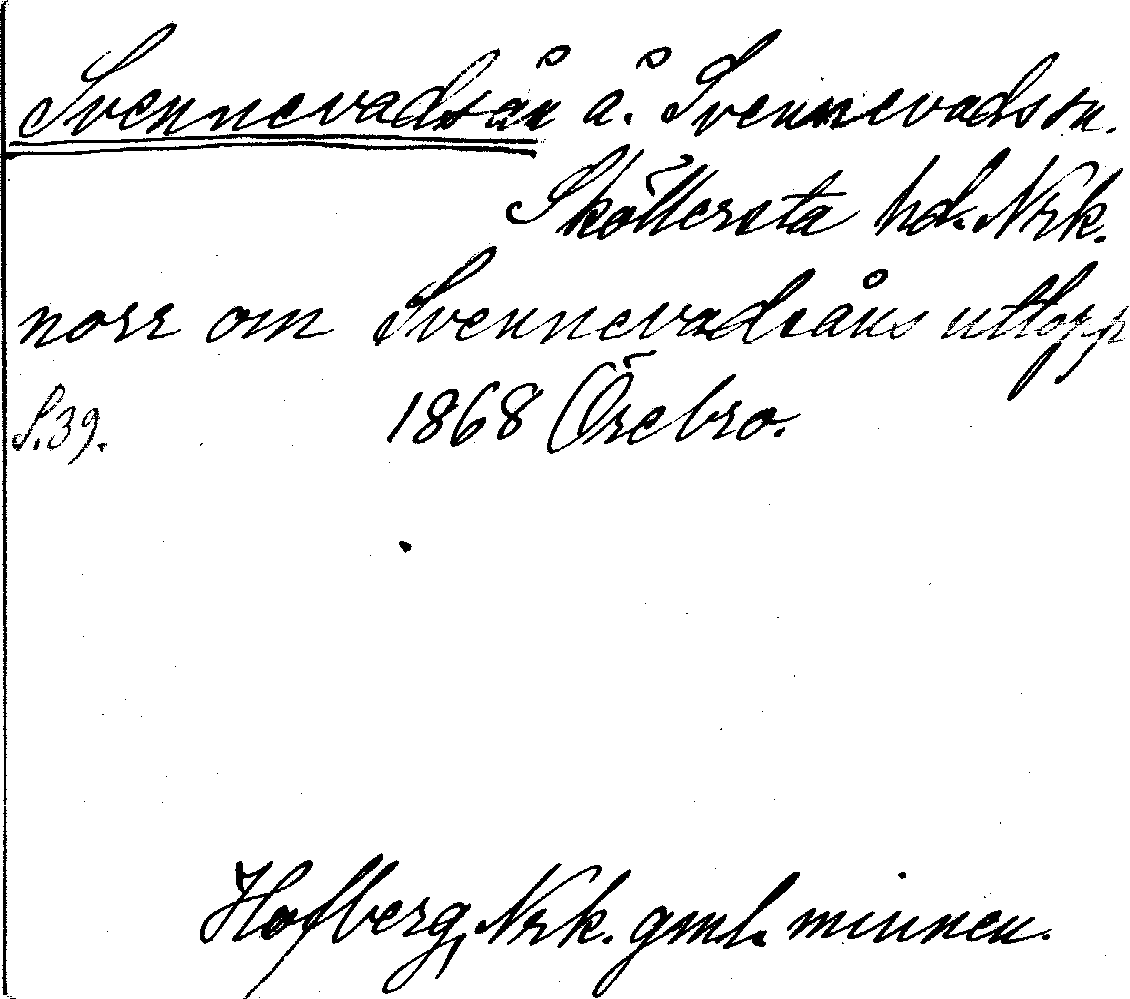 Svennevadsån å. Svennevads sn.
Sköllersta hd. Nrk.
norr om Svennevadsåns utlopp
S.39. 1868 Örebro.
Hofberg, Nrk. gml. minnen.